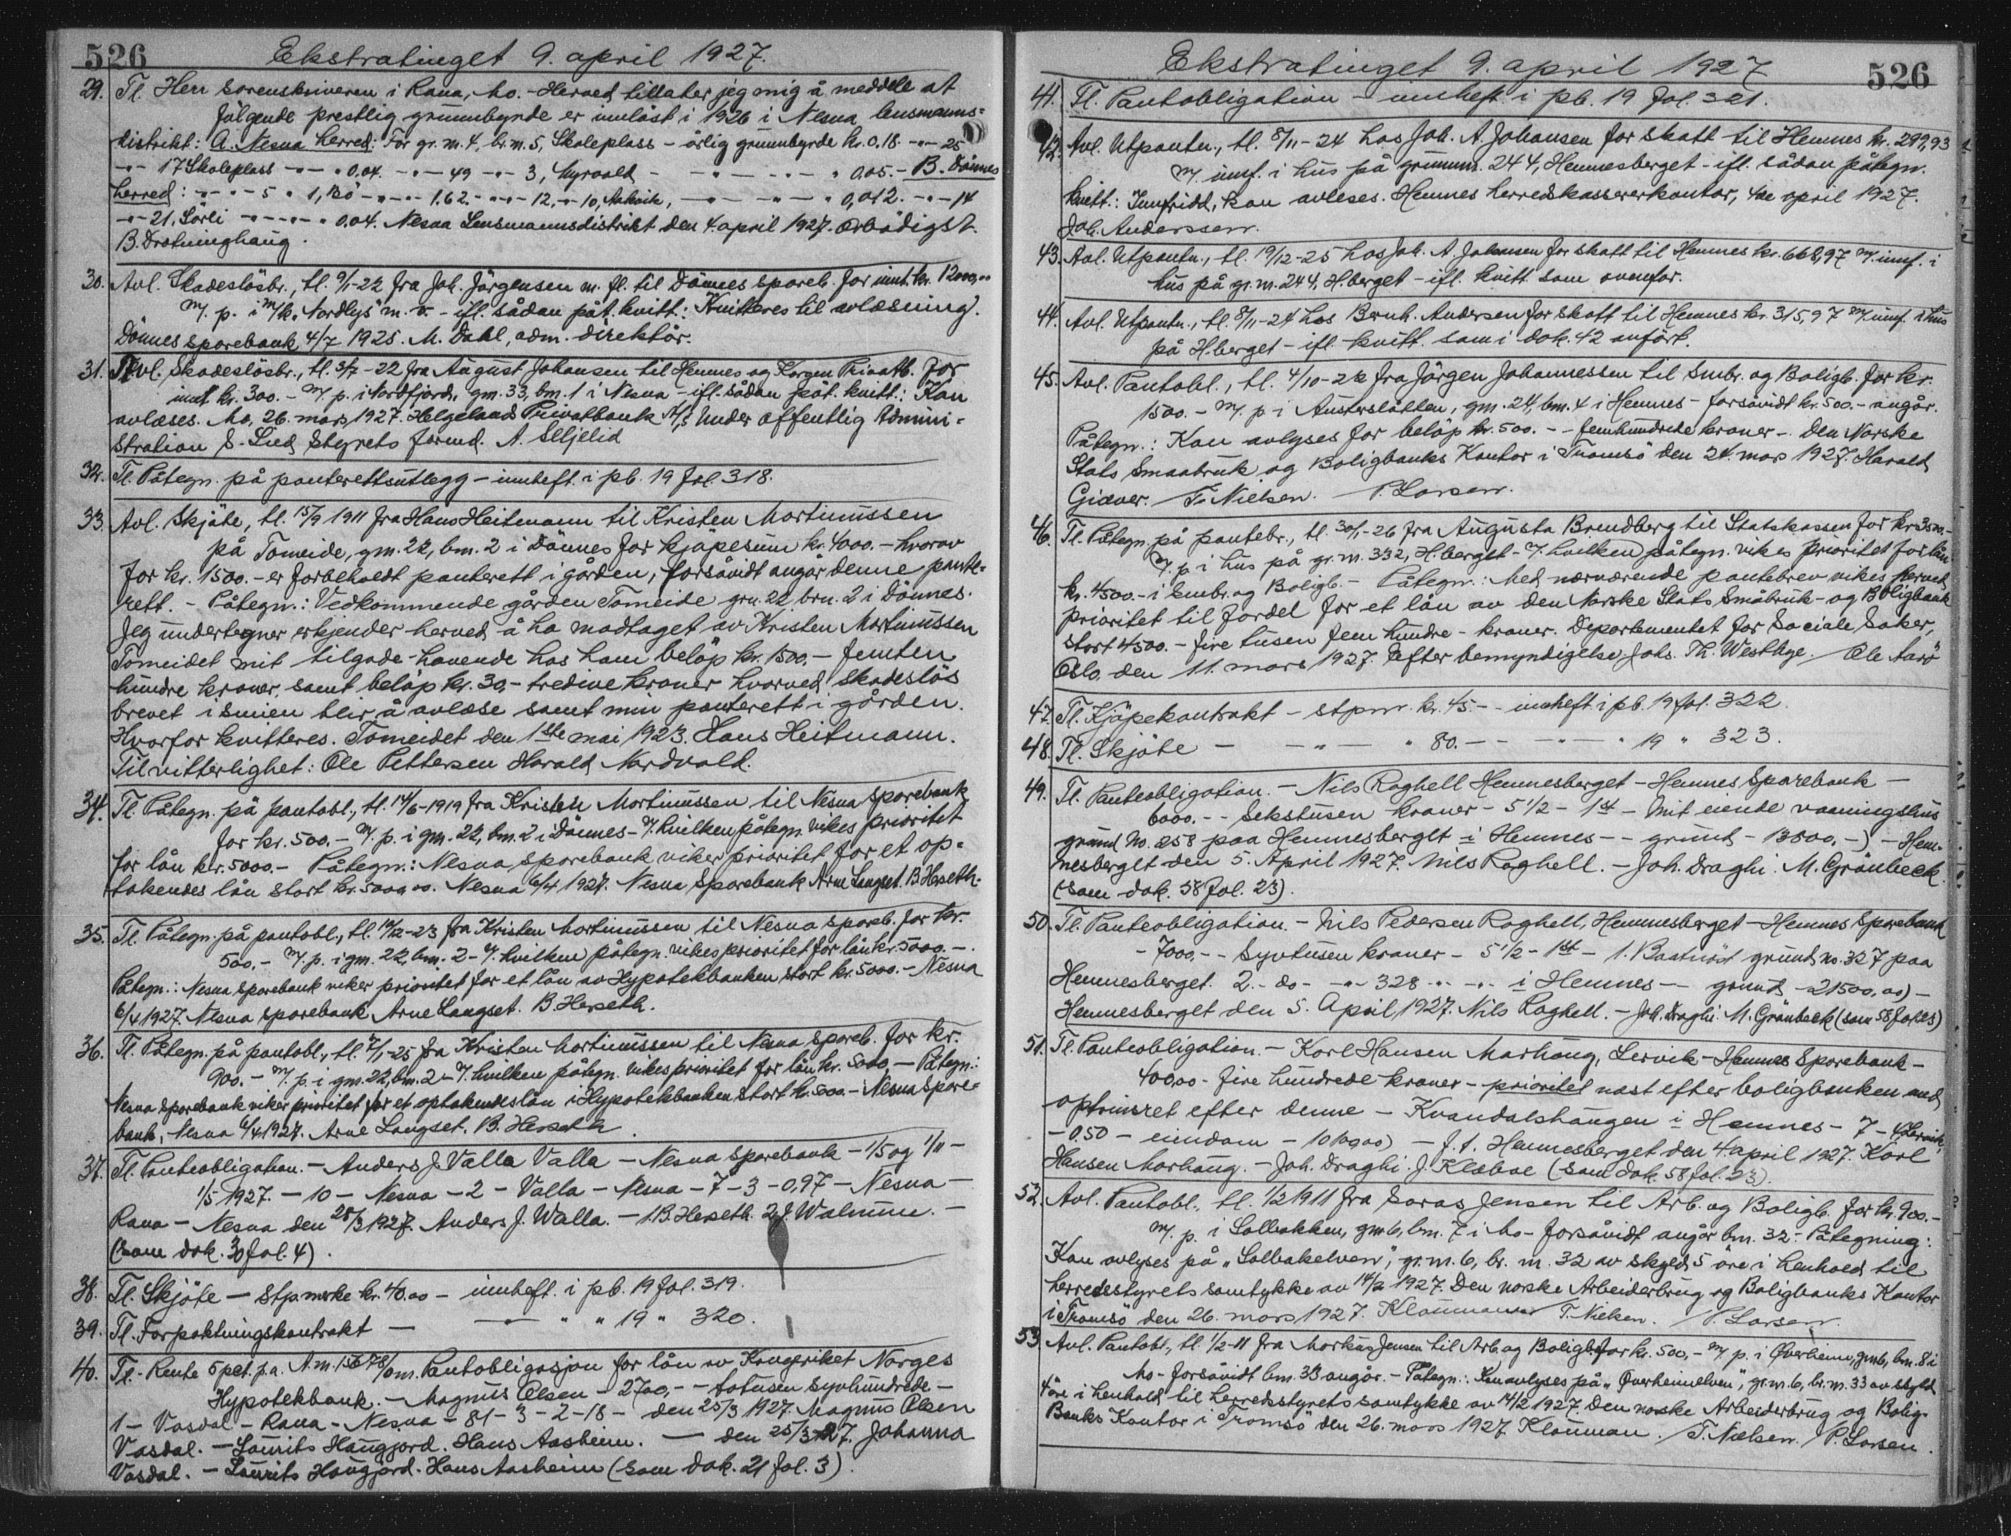 526
Ekstratinget 9. april 1927.
29. Tl. Herr Sorenskriveren i Rana, Mo. - Herved tillater jeg mig å meddele at
følgende prestlig grunnbyrde er innløst i 1926 i Nesna lensmanns=
distrikt: A. Nesna herred: For gr. m. 4, br. m. 5, Skoleplass - årlig grunnbyrde kr. 0.18. -"- 25
-"- 17 Skoleplass -"- 0,04. -"- 49 -"- 3, -"- 0,05. - B. Dönnes
herred: -"- 5 " 1, Bö -"- 1.62. -"- 12, -"- 10, -"- 0,012. -"- 14
-"- 21, Sörli -"- 0.04. Nesna Lensmannsdistrikt den 4. april 1927. Ærbödigst.
B. Drotninghaug.
30. Avl. Skadeslösbr., tl. 9/1-22 fra Joh. Jörgensen m. fl. til Dönnes spareb. for innt. kr. 12000,00
m/. p. i m/k. "Nordlys" m. v. - ifl. sådan påt. kvitt: Kvitteres til avlæsning.
Dönnes sparebank, 4/7 1925. M. Dahl, adm. direktör.
31. Avl. Skadeslösbr., tl. 3/7-22 fra August Johansen til Hemnes og Korgen Privatb. for
innt. kr. 300. - m/. p. i Nordfjord, gm. 33, bm. 1 i Nesna - ifl. sådan påt. kvitt.: Kan
avlæses. Mo, 26. mars 1927. Helgelands Privatbank A/S Under offentlig Admini=
stration S. Lied Styrets formd. A. Selljelid
32. Tl. Påtegn. på panterettsutlegg - innheft. i pb. 19 fol. 318.
33. Avl. Skjöte, tl. 15/9 1911 fra Hans Heitmann til Kristen Mortinussen
på Tomeide, gm. 22, bm. 2 i Dönnes for kjöpesum kr. 4000. - hvorav
for kr. 1500. - er forbeholdt panterett i gården, forsåvidt angår denne pante=
rett. - Påtegn.: Vedkommende gården Tomeide grn. 22 brn. 2 i Dönnes.
Jeg undertegner erkjender herved å ha modtaget av Kristen Mortinussen
Tomeidet mit tilgode-havende hos ham belöp kr. 1500. - femten
hundre kroner, samt belöp kr. 30, - tredive kroner hvorved skadeslös
brevet i sin blir å avlæse samt min panterett i gården.
Hvorfor kvitteres. Tomeidet den 1ste mai 1923. Hans Heitmann.
Til vitterlighet: Ole Pettersen Harald Nordvold.
34. Tl. Påtegn. på pantobl., tl. 14/6-1919 fra Kristen Mortinussen til Nesna sparebank
for kr. 500. - m/. p. i gm. 22, bm. 2 i Dönnes - v/. hvilken påtegn. vikes prioritet
for lån kr. 5000. - Påtegn.: Nesna sparebank viker prioritet for et op=
takendes lån stort kr. 5000,00. Nesna 6/4 1927. Nesna Sparebank Arne Langset. B. Herseth.
35. Tl. Påtegn. på pantobl., tl. 14/2-23 fra Kristen Mortinussen til Nesna spareb. for kr.
500, - m/. p. i gm. 22, bm. 2 - v/. hvilken påtegn. vikes prioritet for lån kr. 5000. -.
Påtegn.: Nesna sparebank viker prioritet for et lån av Hypotekbanken stort kr. 5000. - Nesna
6/4 1927. Nesna sparebank Arne Langset. B. Herseth.
36. Tl. Påtegn. på pantobl., tl. 2/1-25 fra Kristen Mortinussen til Nesna spareb. for kr.
900. - m/. p. i gm. 22, bm. 2 - v/. hvilken påtegn. vikes prioritet for lån kr. 5000, - Påtegn.:
Nesna sparebank viker prioritet for et optakendes lån i Hypotekbanken stort kr. 5000. - Nesna spare=
bank, Nesna 6/4 1927. Arne Langset. B. Herseth.
37. Tl. Panteobligation. - Anders J. Valla Valla - Nesna sparebank - 1/5 og 1/11 -
1/5 1927. - 10 - Nesna - 2 - Valla - Nesna - 7 - 3 - 0,97 - Nesna -
Rana - Nesna den 28/3 1927. Anders J. Walla. - 1. B. Herseth. 2. J. Walnum. -
(som dok. 30 fol. 4).
38. Tl. Skjöte - Stp.merke kr. 40.00 - innheft. i pb. 19 fol. 319.
39. Tl. Forpaktningskontrakt - -"- " " 19 " 320.
40. Tl. - Rente 5 pct. p.a. Pantobligasjon for lån av Kongeriket Norges
Hypotekbank. - Magnus Olsen - 2700, - - totusen syvhundrede -
1 - Vasdal - Rana - Nesna - 81 - 3 - 2-18 - den 25/3 1927. Magnus Olsen
Vasdal. - Laurits Haugjord. Hans Aasheim. - den 25/3 27. Johanna
Vasdal. - Laurits Haugjord. Hans Aasheim (som dok. 21 fol. 3).
Ekstratinget 9. april 1927
526
41. Tl. Pantobligation - innheft. i pb. 19 fol. 321.
42. Avl. Utpantn., tl. 8/11-24 hos Joh. A. Johansen for skatt til Hemnes kr. 299,93
m/. innf. i hus på grunnm. 244, Hemnesberget - ifl. sådan påtegn.
kvitt.: Innfridd, kan avleses. Hemnes herredskassererkontor, 4de april 1927.
Joh. Anderssen.
43. Avl. Utpantn., tl. 19/12-25 hos Joh. A. Johansen for skatt til Hemnes kr. 662,97 m/. innf. i
hus på gr. m. 244, H.berget - ifl. kvitt. som ovenfor.
44. Avl. Utpantn., tl. 8/11-24 hos Bernh. Andersen for skatt til Hemnes kr. 315,97 m/. innf. i hus
på H.berget - ifl. kvitt. som i dok. 42 anfört.
45. Avl. Pantobl., tl. 4/10-22 fra Jörgen Johannessen til Smbr. og Boligb. for kr.
1500. - m/. p. i Austerslåtten, gm. 24, bm. 4 i Hemnes - forsåvidt kr. 500. - angår.
Påtegn.: Kan avlyses for belöp kr. 500. - - femhundrede kroner -. Den Norske
Stats Smaabruk og Boligbanks Kontor i Tromsö den 24. mars 1927. Harald
Giæver. T. Nielsen. P. Larsen.
46. Tl. Påtegn. på pantebr., tl. 30/1-26 fra Augusta Brendberg til Statskassen for kr. 350. -
m/. p. i hus på gr. m. 332, H.berget - v/. hvilken påtegn. vikes prioritet for lån
kr. 4500. - i Smbr. og Boligb. - Påtegn.: Med nærværende pantebrev vikes herved
prioritet til fordel for et lån av den Norske Stats Småbruk- og Boligbank
stort 4500. - fire tusen fem hundre - kroner. Departementet for Sociale Saker,
Oslo, den 11. mars 1927. Efter bemyndigelse Johs. Th. Westbye. / Ole Aarö
47. Tl. Kjöpekontrakt - stpm. kr. 45. - - innheft i pb. 19 fol. 322.
48. Tl. Skjöte - -"- " 80. - -"- " 19 " 323.
49. Tl. Panteobligation. - Nils Raghell Hemnesberget - Hemnes Sparebank -
6000. - - Sekstusen kroner - 5 1/2 - 1st - Mit eiende vaaningshus
grund No. 258 paa Hemnesberget i Hemnes - - grund - 13500, -) - Hem=
nesberget den 5. April 1927. Nils Raghell. - Joh. Draghi. M. Grönbeck.
(Som dok. 58 fol. 23).
50. Tl. Panteobligation. - Nils Pedersen Raghell, Hemnesberget - Hemnes Sparebank
- 7000. - - Syvtusen kroner - 5 1/2 - 1st - 1. Baatnöst grund no. 327 paa
Hemnesberget. 2. - do - -"- 328 -"- -"- i Hemnes - - grund - 21500,00) -
Hemnesberget den 5. April 1927. Nils Raghell. - Joh. Draghi. M. Grönbeck (som 58 fol 23)
51. Tl. Panteobligation. - Karl Hansen Marhaug, Lervik - Hemnes Sparebank -
400,00 - fire hundrede kroner - prioritet næst efter boligbanken med
optrinsret efter denne - Kvandalshaugen i Hemnes - 7 - 4, Lervik,
- 0.50 - eiendom - - f. t. Hemnesberget den 4. april 1927. Karl
Hansen Marhaug. - Joh. Draghi. J. Klæboe (som dok. 58 fol. 23).
52. Avl. Pantobl., tl. 1/2 1911 fra Saras Jensen til Arb. og Boligb. for kr. 900. -
m/. p. i Solbakken, gm. 6, bm. 7 i Mo - forsåvidt angår bm. 32 - Påtegning:
Kan avlyses på "Solbakelven", gr. m. 6, br. m. 32 av skyld 5 öre i henhold til
herredsstyrets samtykke av 14/2 1927. Den norske Arbeiderbrug og Boligbanks Kontor
i Tromsö den 26. mars 1927. Klaumann T. Nielsen. P. Larsen.
53. Avl. Pantobl., tl. 1/2-11 fra Markus Jensen til Arb. og Boligb. for kr. 500, - m/. p. i Øverheim, gm. 6, bm. 8 i
Mo - forsåvidt bm. 33 angår. - Påtegn.: Kan avlyses på "Øverheimelven", gr. m. 6, br. m. 33 av skyld
4 öre i henhold til herredsstyrets samtykke av 14/2 1927. Den norske Arbeiderbrug og Bolig=
Banks Kontor i Tromsö den 26. mars 1927. Klauman. / T. Nielsen. / P. Larsen.